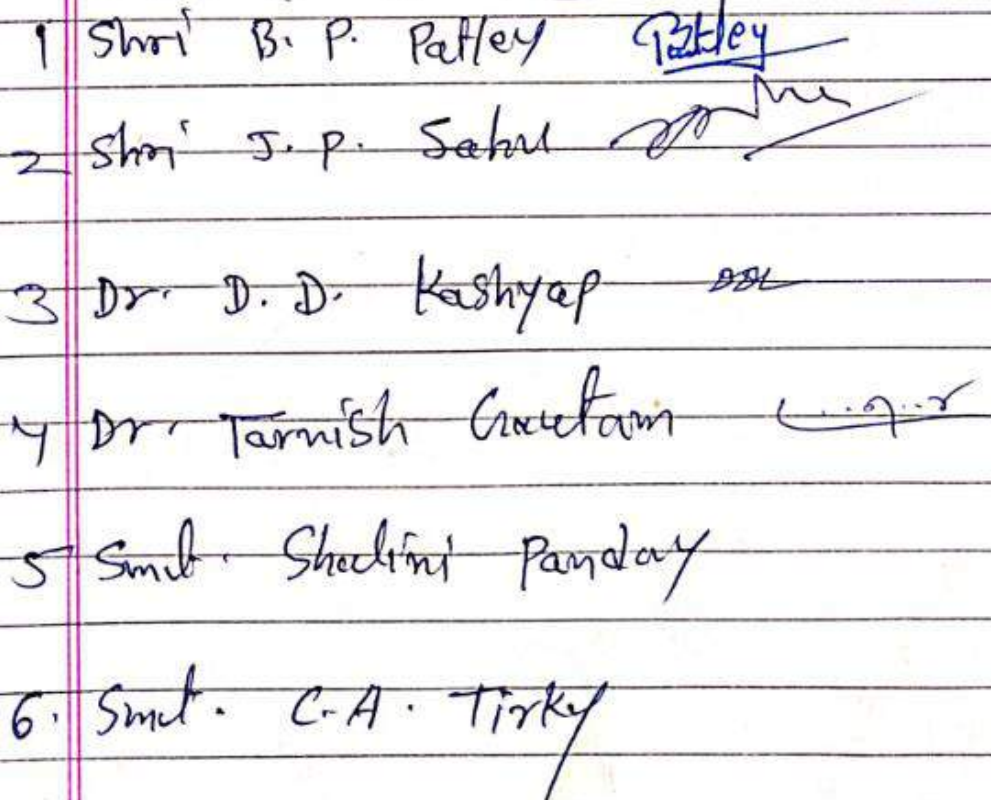 1 Shri B. P. Patley Patley
2 Shri J. P. Sahu
3 Dr. D. D. Kashyap
4 Dr. Tarnish Gautam
5 Smt. Shalini Panday
6. Smt. C.A. Tirky